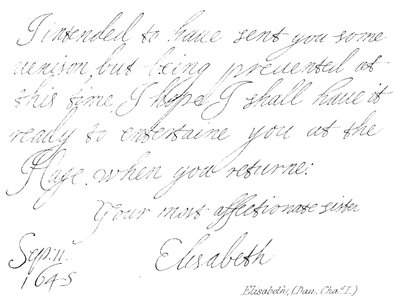 I intended to have sent you some
uenison, but being preuented at
this time I hope I shall haue it
ready to entertaine you at the
Hage when you returne:
Your most affectionate sister
Elisabeth
Sep: 11
1645
Elisabeth, (Dau. Chaˢ I.)